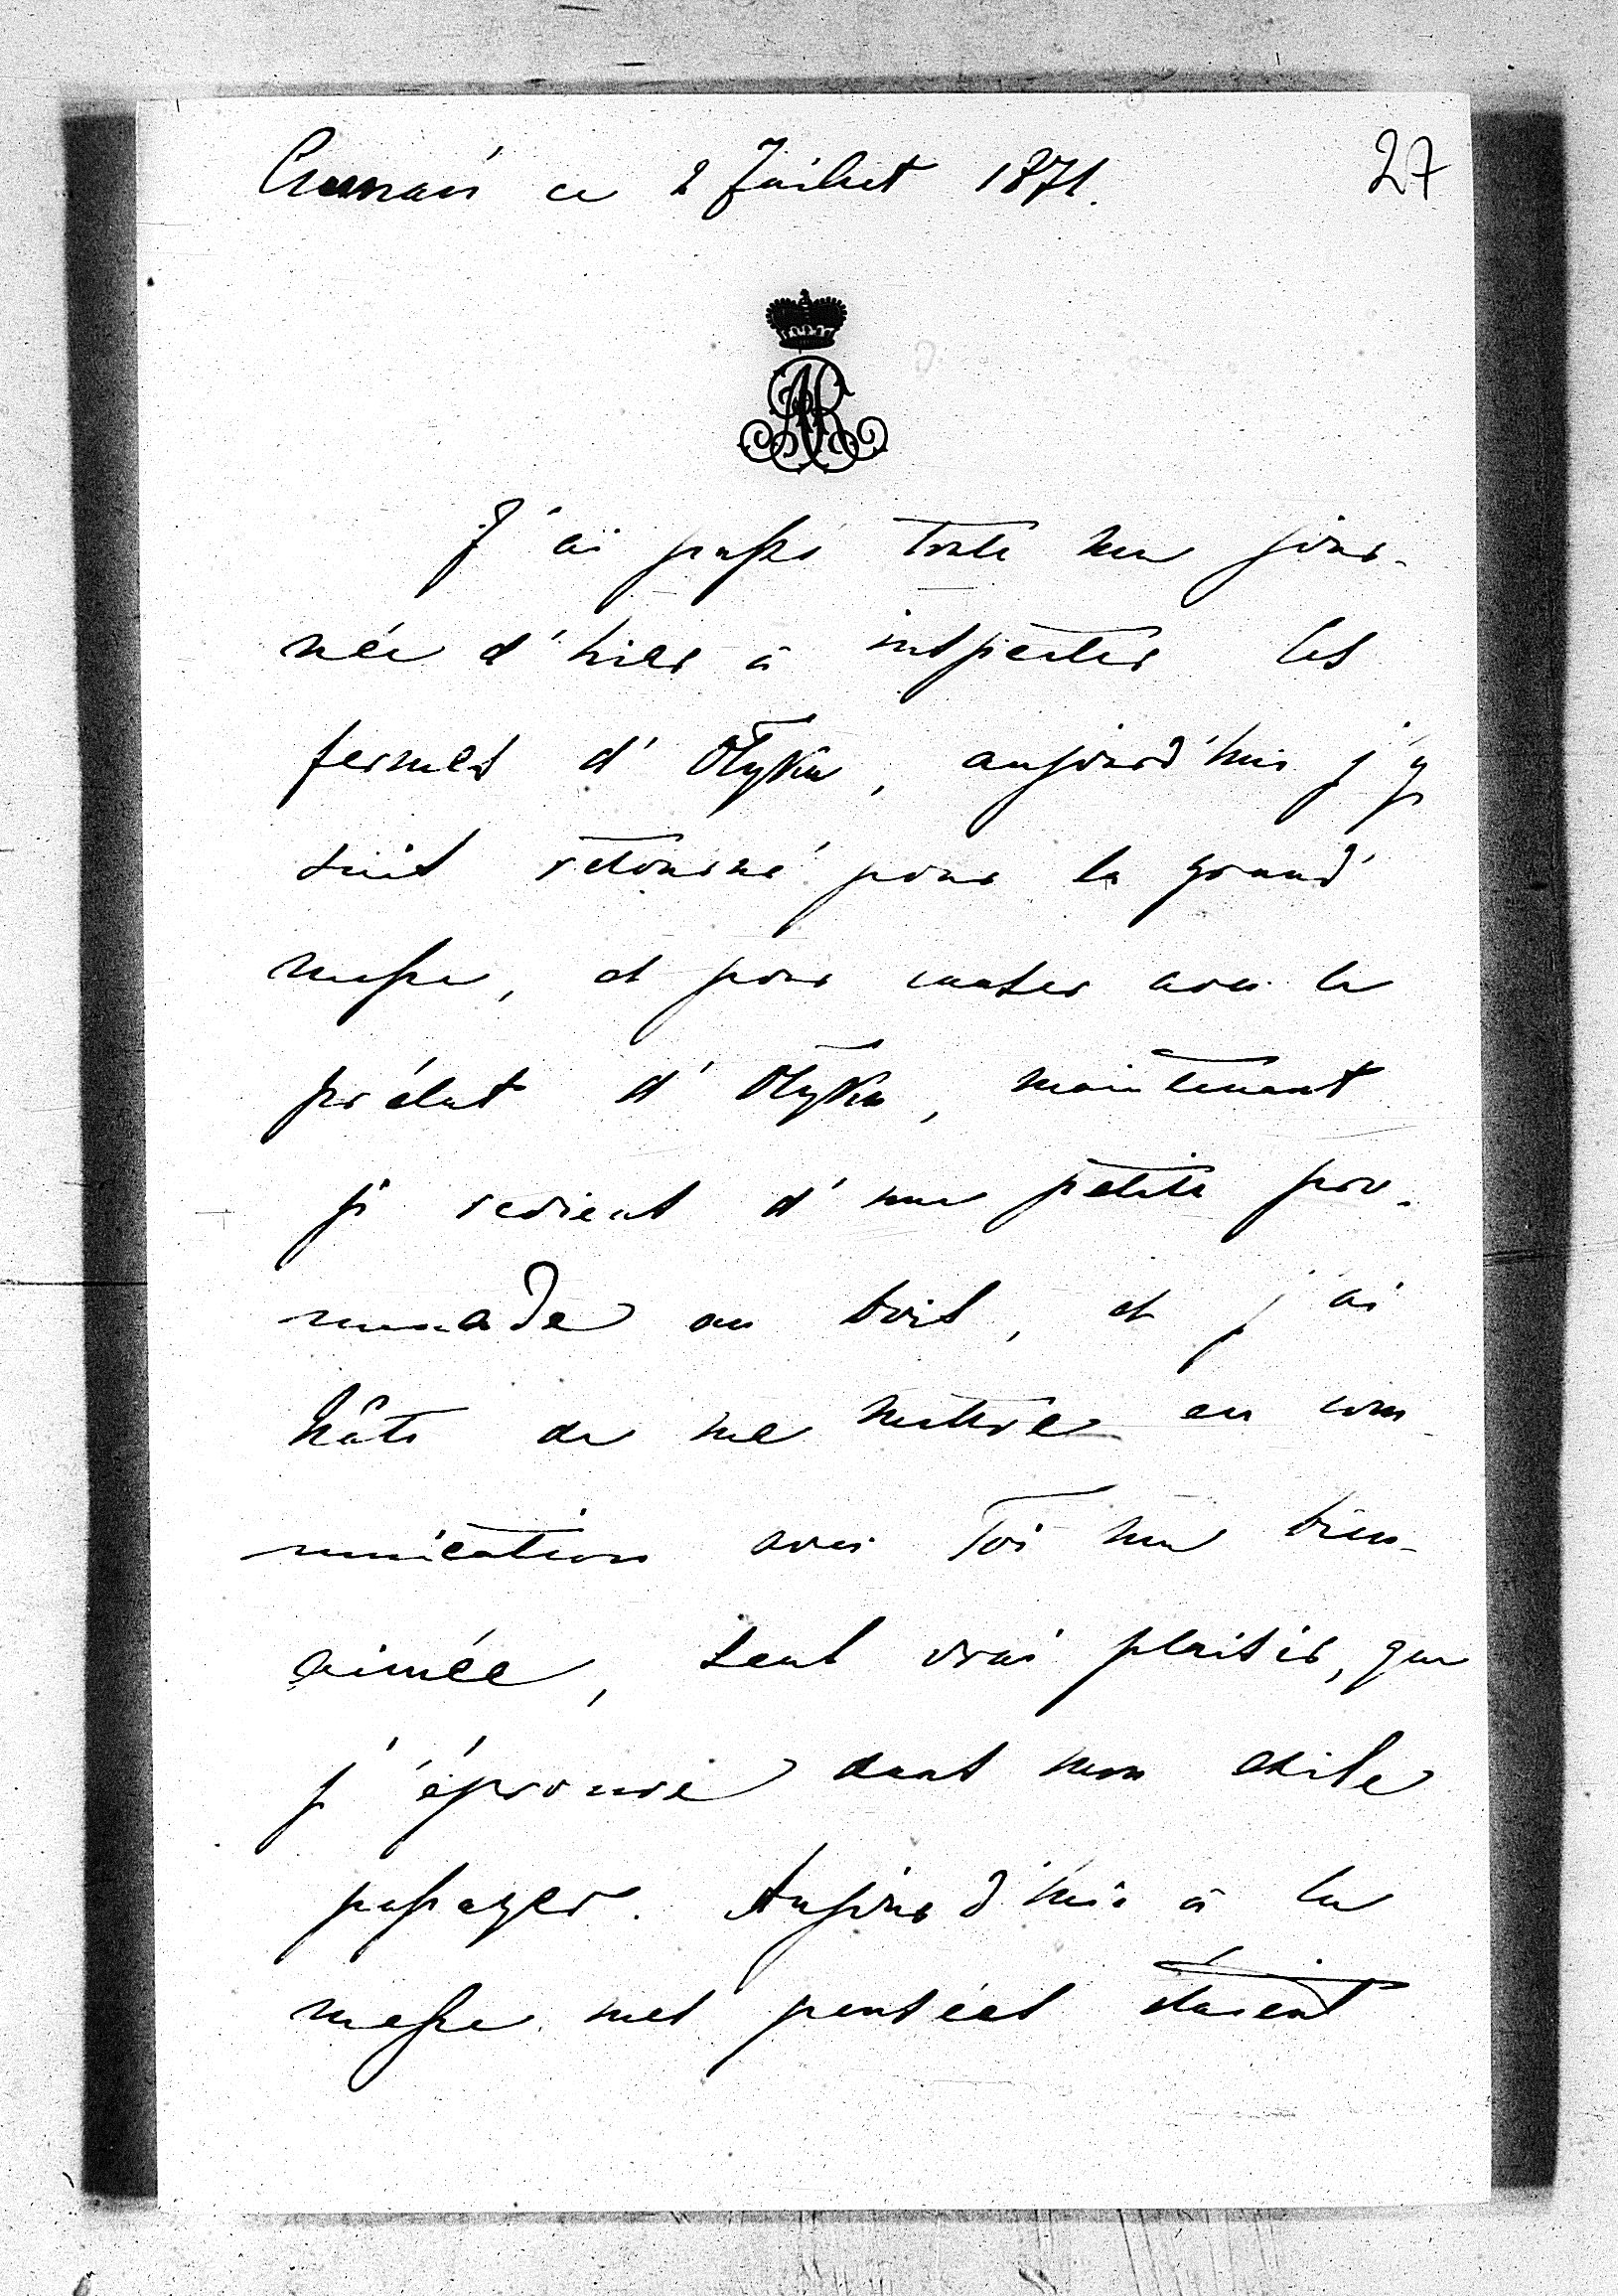 ce 2 Juillet 1871.
27
J'ai passé toute ma jour-
née d'hier à inspecter les
fermes d'Ołyka, aujourd'hui j'y
suis retourné pour la grand'
messe, et pour causer avec le
prélat d'Ołyka, maintenant
je reviens d'une petite pro-
menade au bois, et j'ai
hâte de me mettre en com-
munication avec Toi ma bien-
aimée, seul vrai plaisir, que
j'éprouve dans mon exile
passager. Aujourd'hui à la
messe mes pensées étaient